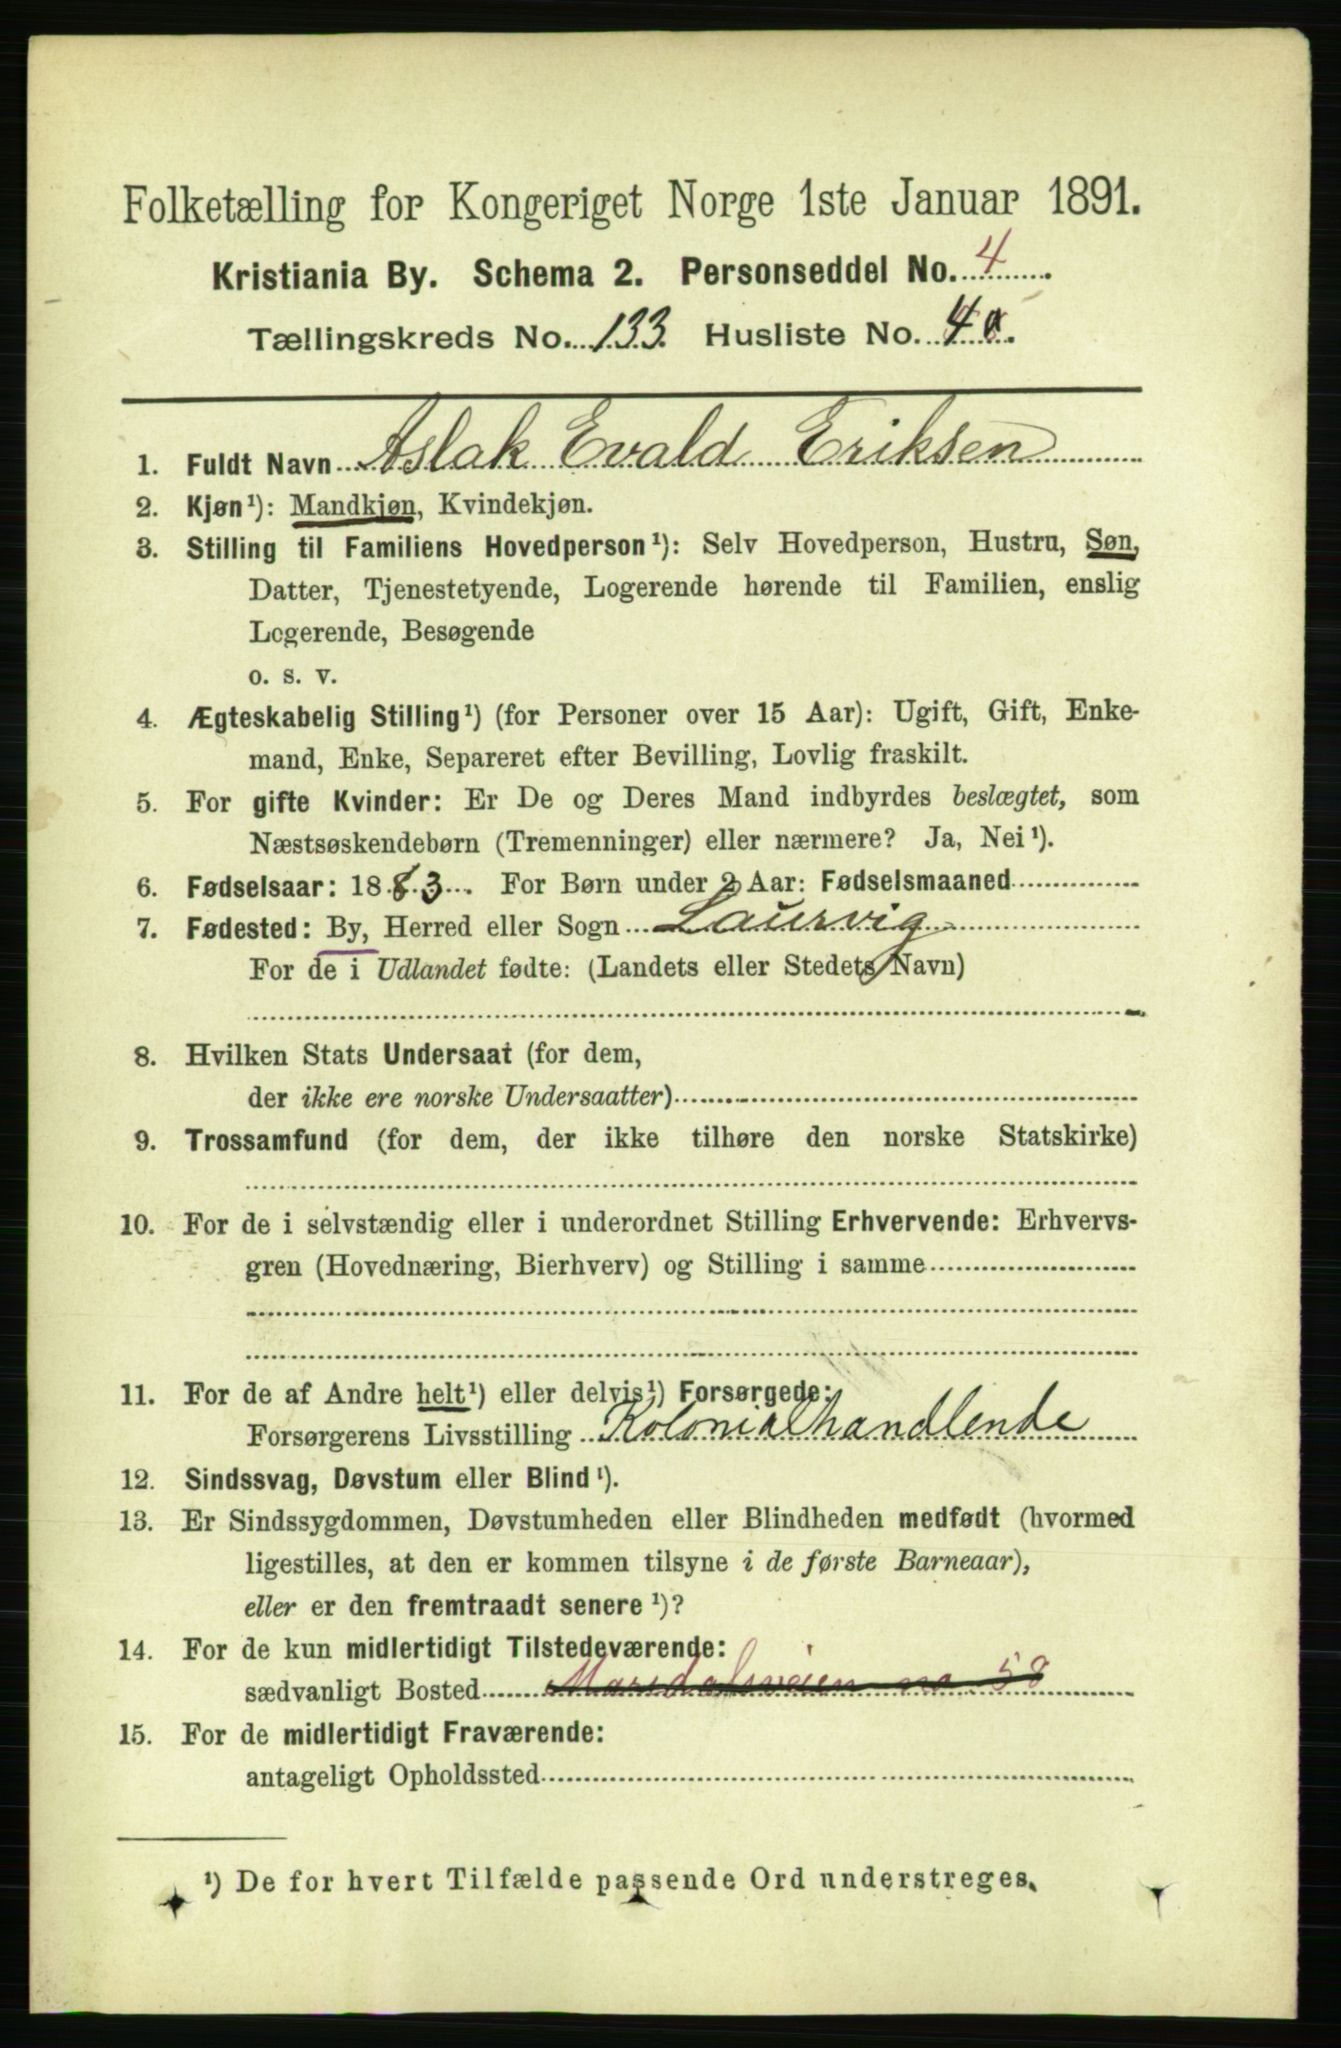 Folketælling for Kongeriget Norge 1ste Januar 1891.
Kristiania By. Schema 2. Personseddel No. 4
Tællingskreds No. 133 Husliste No. 40.
1. Fuldt Navn Aslak Evald Eriksen
2. Kjøn¹): Mandkjøn, Kvindekjøn.
3. Stilling til Familiens Hovedperson¹): Selv Hovedperson, Hustru, Søn,
Datter, Tjenestetyende, Logerende hørende til Familien, enslig
Logerende, Besøgende
o. s. v.
4. Ægteskabelig Stilling¹) (for Personer over 15 Aar): Ugift, Gift, Enke-
mand, Enke, Separeret efter Bevilling, Lovlig fraskilt.
5. For gifte Kvinder: Er De og Deres Mand indbyrdes beslægtet, som
Næstsøskendebørn (Tremenninger) eller nærmere? Ja, Nei¹).
6. Fødselsaar: 1883. For Børn under 2 Aar: Fødselsmaaned
7. Fødested: By, Herred eller Sogn Laurvig
For de i Udlandet fødte: (Landets eller Stedets Navn)
8. Hvilken Stats Undersaat (for dem,
der ikke ere norske Undersaatter)
9. Trossamfund (for dem, der ikke tilhøre den norske Statskirke)
10. For de i selvstændig eller i underordnet Stilling Erhvervende: Erhvervs-
gren (Hovednæring, Bierhverv) og Stilling i samme
11. For de af Andre helt¹) eller delvis¹) Forsørgede:
Forsørgerens Livsstilling Kolonialhandlende
12. Sindssvag, Døvstum eller Blind¹).
13. Er Sindssygdommen, Døvstumheden eller Blindheden medfødt (hvormed
ligestilles, at den er kommen tilsyne i de første Barneaar),
eller er den fremtraadt senere¹)?
14. For de kun midlertidigt Tilstedeværende:
sædvanligt Bosted Maridalsveien no 58
15. For de midlertidigt Fraværende:
antageligt Opholdssted
¹) De for hvert Tilfælde passende Ord understreges.